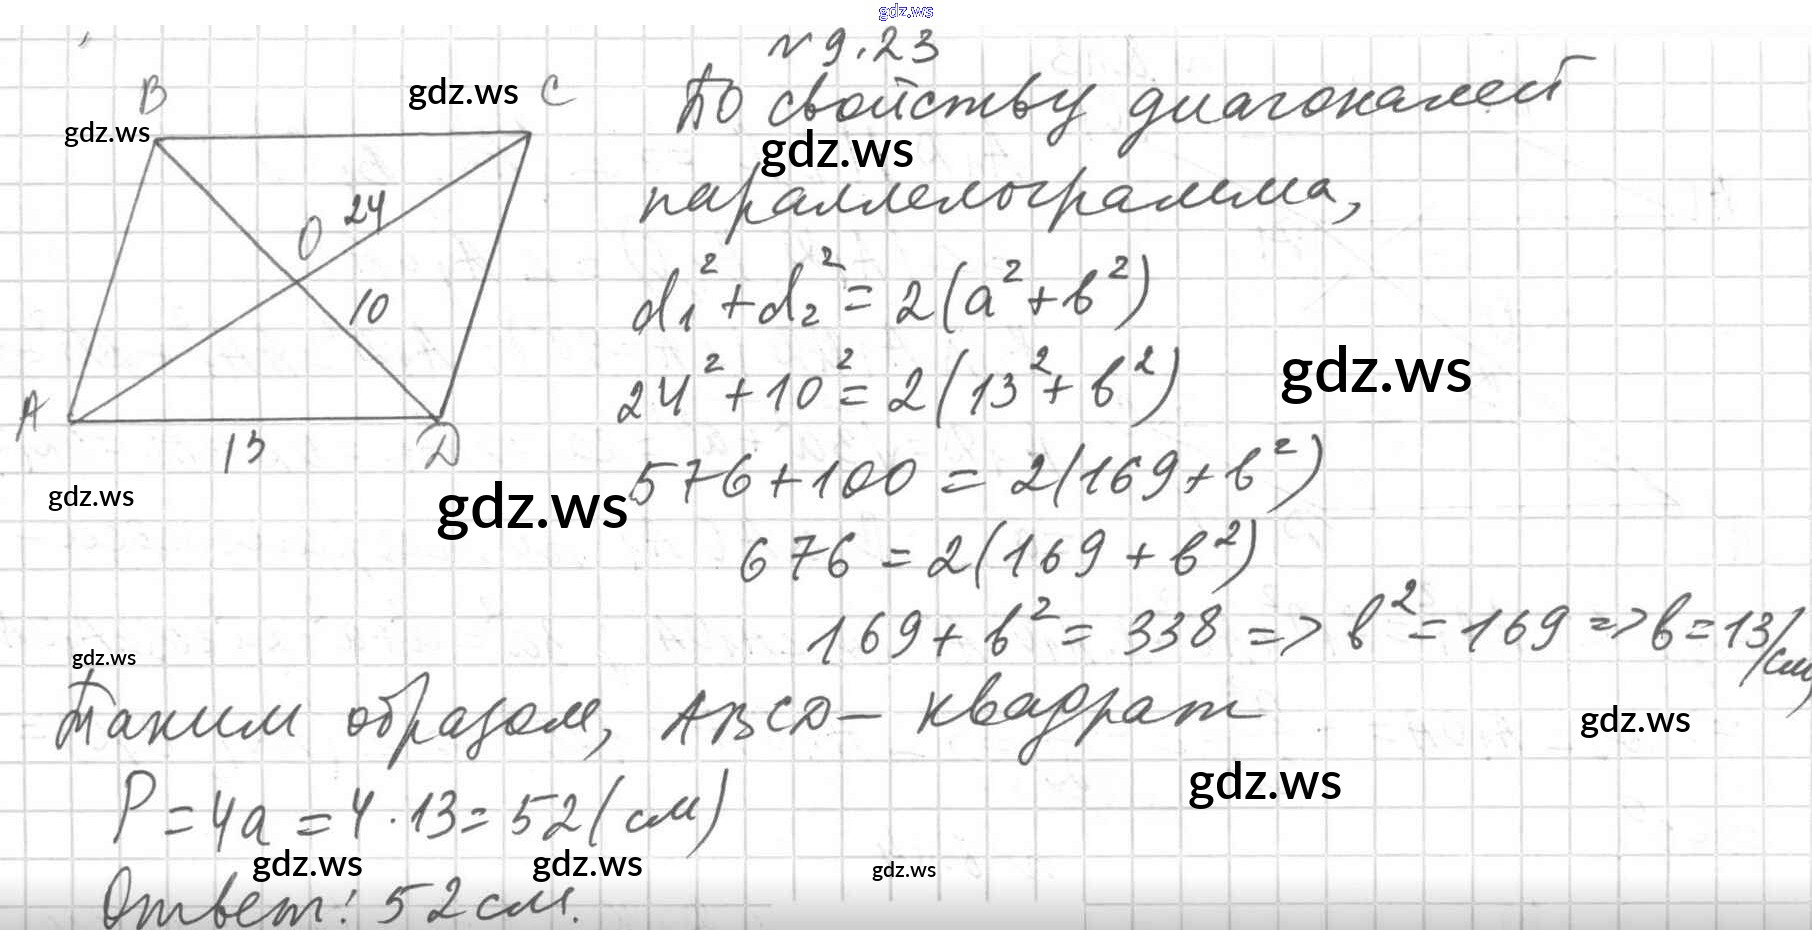 gdz.ws
№ 9.23
B
gdz.ws
C
gdz.ws
По свойству диагоналей
gdz.ws
параллелограмма,
24
O
10
A
13
D
d₁² + d₂² = 2(a² + b²)
24² + 10² = 2(13² + b²)
gdz.ws
gdz.ws
gdz.ws
576 + 100 = 2(169 + b²)
676 = 2(169 + b²)
169 + b² = 338 => b² = 169 => b = 13(см)
gdz.ws
Таким образом, ABCD – квадрат
gdz.ws
gdz.ws
P = 4a = 4 · 13 = 52 (см)
gdz.ws
gdz.ws
gdz.ws
Ответ: 52 см.